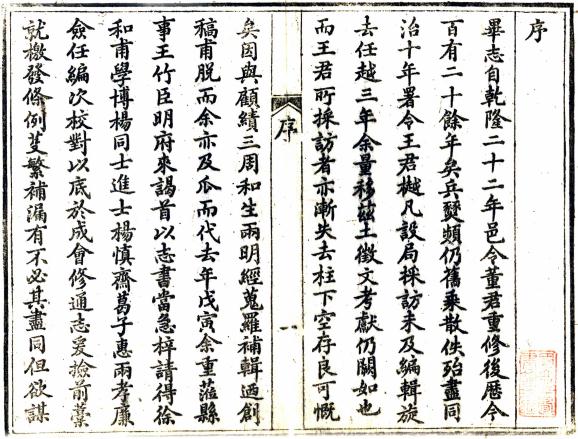 序
畢志自乾隆二十二年邑令董君重修後歷今
百有二十餘年矣兵燹頻仍舊乘散佚殆盡同
治十年署令王君樾凡設局採訪未及編輯旋
去任越三年余量移茲土徵文考獻仍闕如也
而王君所採訪者亦漸失去柱下空存良可慨
序
一
矣因與顧績三周和生兩明經蒐羅補輯迺創
稿甫脫而余亦及瓜而代去年戊寅余重蒞縣
事王竹臣明府來謁首以志書當急梓請得徐
和甫學博楊同士進士楊慎齋葛子惠兩孝廉
僉任編次校對以底於成會修通志爰撿前稾
就檄發條例芟繁補漏有不必其盡同但欲謀